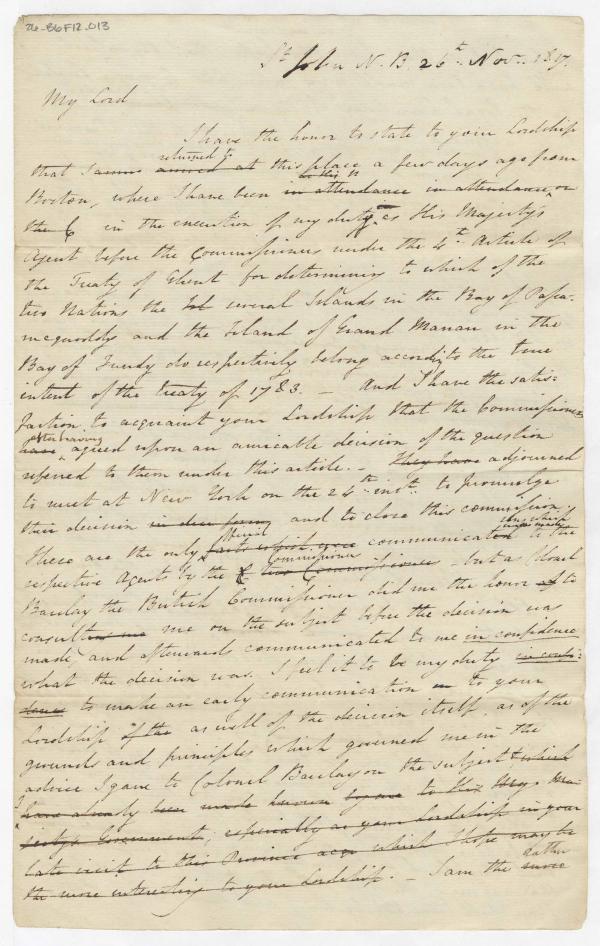 26-86F12-013
St John N. B. 26th Nov. 1817.
My Lord
I have the honor to state to your Lordship
returned to
that I arrived at this place a few days ago from
to this
Boston, where I have been in attendance in attendance on
the C in the execution of my duty as His Majesty's
Agent before the Commissioners under the 4th Article of
the Treaty of Ghent for determining to which of the
two Nations the Isl several Islands in the Bay of Passa-
mequoddy and the Island of Grand Manan in the
Bay of Fundy do respectively belong according to the true
intent of the treaty of 1783. — And I have the satis-
faction to acquaint your Lordship that the Commissioners
after having
have agreed upon an amicable decision of the question
referred to them under this article. — They have adjourned
to meet at New York on the 24th inst. to promulge
their decision in due form and to close this commission
These are the only facts which were communicated to the
Commissioners
respective Agents by the C two Commissioners — but as Colonel
Barclay the British Commissioner did me the honor of to
consult me on the subject before the decision was
made, and afterwards communicated to me in confidence
what the decision was. I feel it to be my duty in confi-
dence to make an early communication to your
Lordship of the as well of the decision itself, as of the
grounds and principles which governed me in the
advice I gave to Colonel Barclay on the subject & which
have already been made known by me to His Majes
jesty's Government, especially as your Lordship in your
late visit to this Province which I hope may be
the more interesting to your Lordship. — I am the more
rather